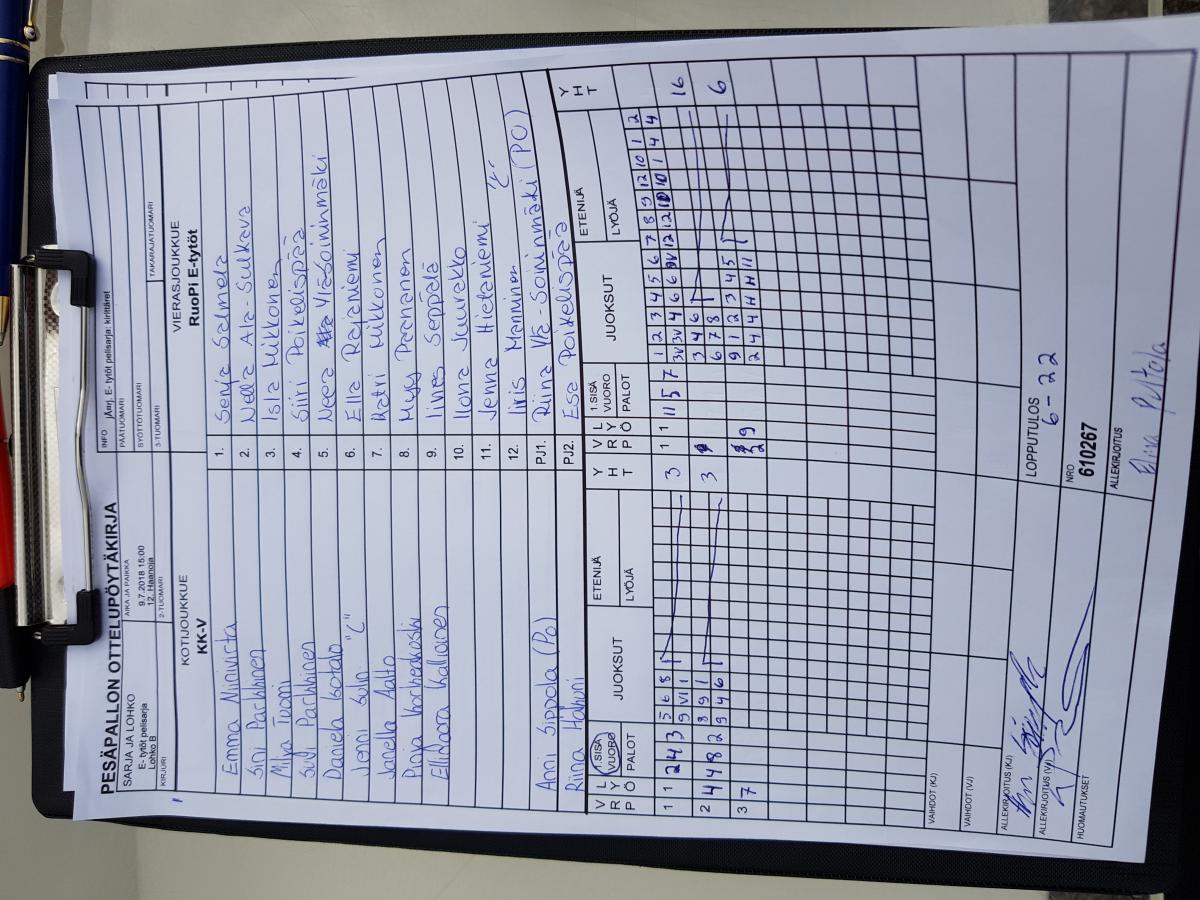 PESÄPALLON OTTELUPÖYTÄKIRJA
SARJA JA LOHKO
E- tytöt pelisarja
Lohko B
AIKA JA PAIKKA
9.7.2018 15:00
12. Haanoja
INFO
E- tytöt pelisarja: kirittäret
PÄÄTUOMARI
SYÖTTÖTUOMARI
KIRJURI
2-TUOMARI
3-TUOMARI
TAKARAJATUOMARI
KOTIJOUKKUE
KK-V
VIERASJOUKKUE
RuoPi E-tytöt
Emma Niinivirta
1. Senja Salmela
Sini Parkkinen
2. Nella Ala-Sulkava
Milka Tuomi
3. Isla Mikkonen
Suvi Parkkinen
4. Siiri Poikelispää
Daniela Isotalo
5. Neea Ylä-Soininmäki
Jenni Suni "C"
6. Ella Rajaniemi
Janella Aalto
7. Katri Mikkonen
Pinja Korkeakoski
8. Myy Paananen
Ellinoora Kallioinen
9. Iines Seppälä
10. Ilona Juurakko
11. Jenna Hietaniemi
12. Iiris Manninen "C"
Anni Sippola (Po)
PJ1. Riina Ylä-Soininmäki (PO)
Riina Hakuni
PJ2. Esa Poikelispää
V R L Y P Ö
1.SISÄ VUORO
PALOT
JUOKSUT
ETENIJÄ
LYÖJÄ
Y H T
V R L Y P Ö
1.SISÄ VUORO
PALOT
JUOKSUT
ETENIJÄ
LYÖJÄ
Y H T
1 1 2 4 3 5 6 8 3 1 1 11 5 7 1 2 3 4 5 6 7 8 9 12 10 1 2
9 VI 1 3V 3V 4 6 6 9V 12 12 10 10 1 4 4 16
2 4 4 8 2 8 9 1 3 3 4 6
9 4 6 6 7 8 6
3 7 9 9 1 2 3 4 5
2 4 4 H H H 11
VAIHDOT (KJ)
VAIHDOT (VJ)
ALLEKIRJOITUS (KJ)
LOPPUTULOS
6 - 22
ALLEKIRJOITUS (VJ)
NRO
610267
HUOMAUTUKSET
ALLEKIRJOITUS
Elina Pultala